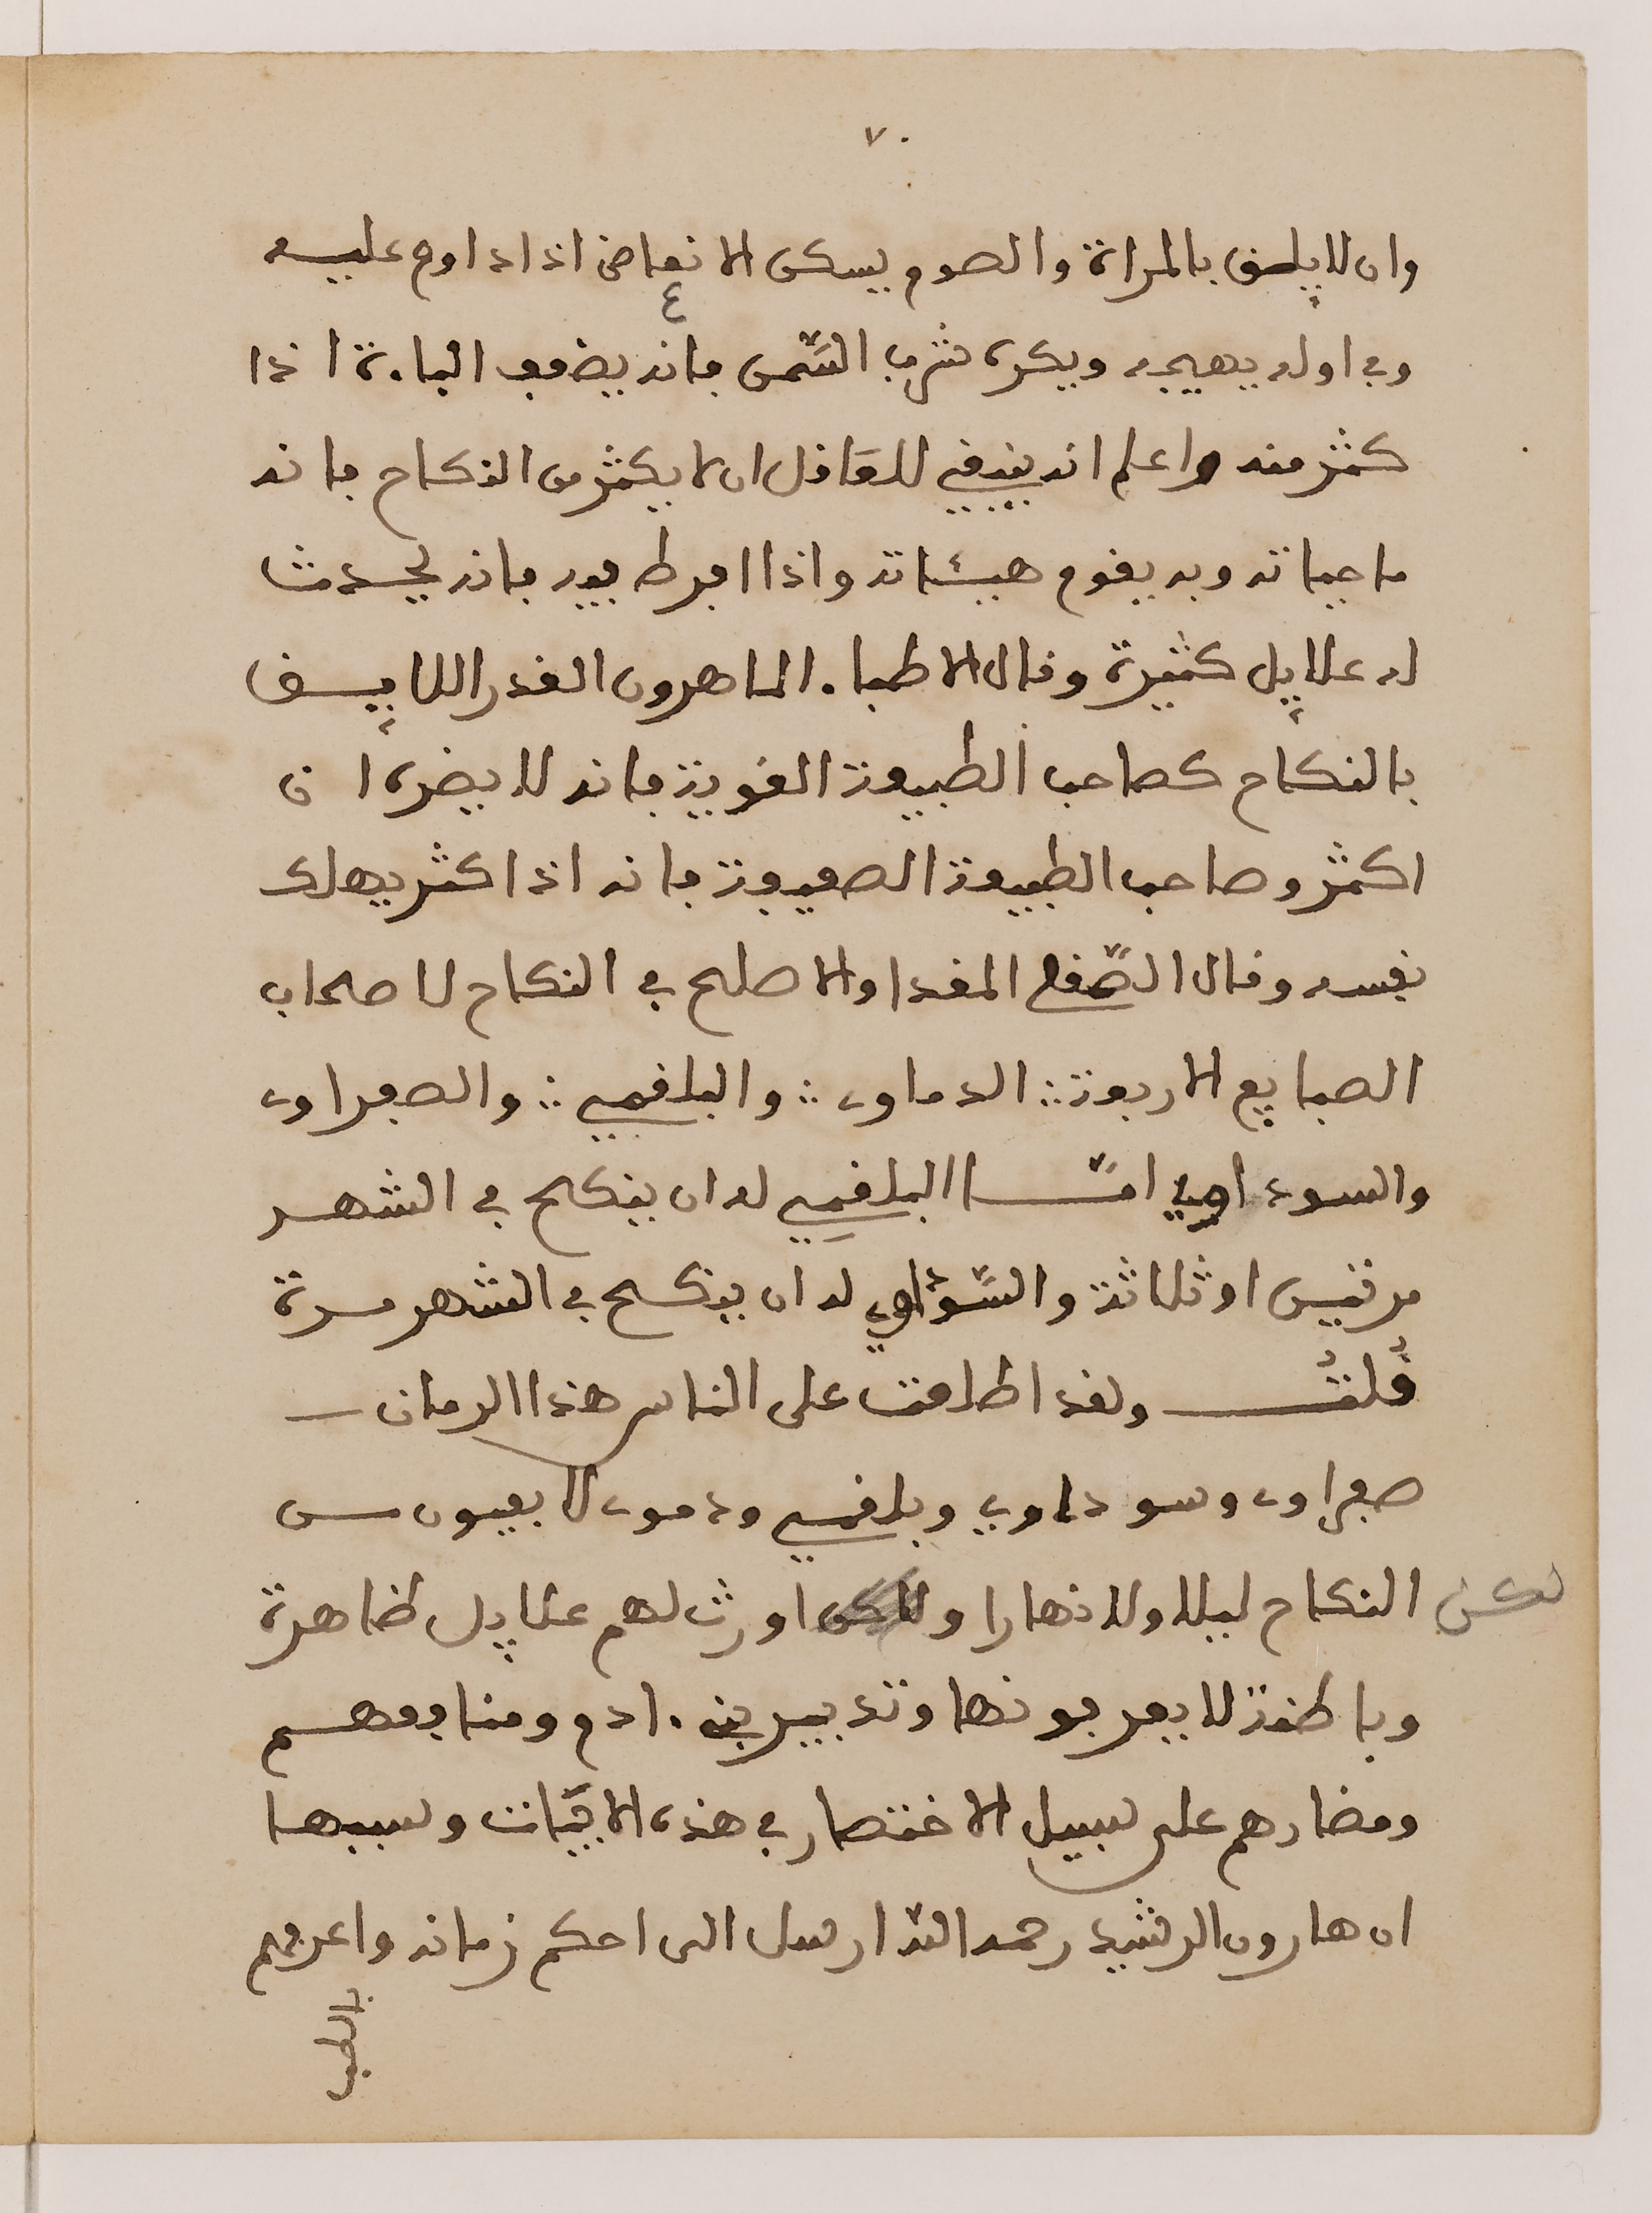 ٧٠
وان لا يلصق بالمراة والصوم يسكن الانعاض اذا داوم عليه
وفي اوله يهيجه ويكره شرب السّمن فانه يضعف الباءة اذا
كثر منه واعلم انه ينبغي للعاقل ان لا يكثر من النكاح فانه
ماء حياته وبه يقوم هيئاته واذا افرط فيه فانه يحدث
له علايل كثيرة وقال الاطباء الماهرون القدر اللايق
بالنكاح كصاحب الطبيعة القوية فانه لا يضره ان
اكثر وصاحب الطبيعة الضعيفة فانه اذا كثر يهلك
نفسه وقال الصّقلي المقدار الاصلح في النكاح لاصحاب
الطبايع الاربعة : الدماوي : والبلغمي : والصفراوي
والسوداوي امّا البلغمي له ان ينكح في الشهر
مرتين او ثلاثة والسّوداوي له ان ينكح في الشهر مرة
قُلتُ ولقد اطلعت على الناس هذا الزمان
صفراوي وسوداوي وبلغمي ودموي لا يفيون من
النكاح ليلا ولا نهارا ولكن اورث لهم علايل ظاهرة
لكن
وباطنة لا يعرفونها وتدبير بنى ءادم ومنافعهم
ومضارهم على سبيل الاختصار في هذه الابيات وسببها
ان هارون الرشيد رحمه اللّه ارسل الى احكم زمانه واعرفهم
بالطب